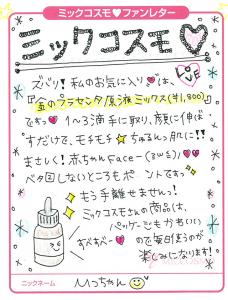 ミックコスモ♥ファンレター
ミックコスモ♡
ズバリ! 私のお気に入り♥は、LOVE
『金のプラセンタ原液ミックス(¥1,800)』
ですっ♥ 1〜3滴 手に取り、顔に伸ば
すだけで、モチモチ☆ちゅるんっ肌に!!
まさしく! 赤ちゃんFace〜(3ω3)♥♥
ベタ②しないところもポイントですっ
もう手離せません!
ミックコスモさんの商品は、
パッケージもかわいい
ので毎日使うのが
楽しみになります!
すべすべ〜♥
ニックネーム
Mっちゃん